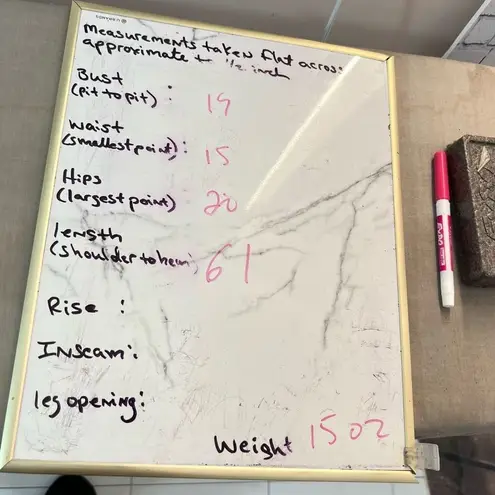 Measurements taken flat across
approximate + ½ inch
Bust
(pit to pit) : 19
Waist
(smallest point): 15
Hips
(largest point) 20
length
(shoulder to hem) 61
Rise :
Inseam:
leg opening:
Weight 15 oz
EXPO